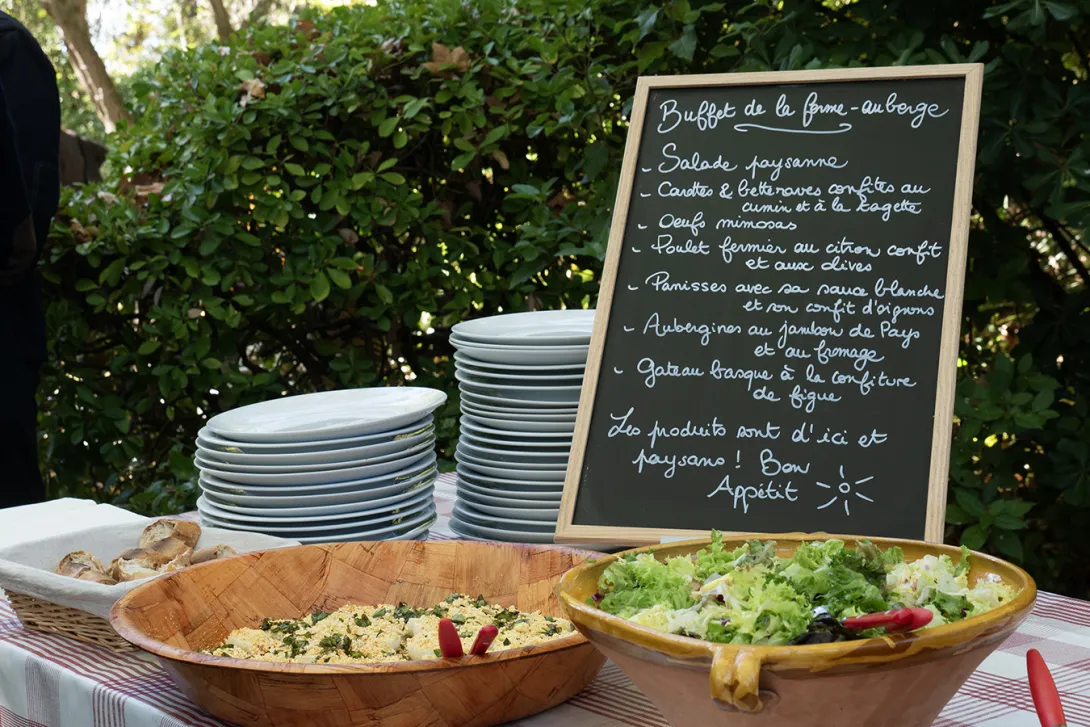 Buffet de la ferme-auberge
- Salade paysanne
- Carottes & betteraves confites au
cumin et à la Fagette
- Oeufs mimosas
- Poulet fermier au citron confit
et aux olives
- Panisses avec sa sauce blanche
et son confit d'oignons
- Aubergines au jambon de Pays
et au fromage
- Gateau basque à la confiture
de figue
Les produits sont d'ici et
paysans ! Bon
Appétit